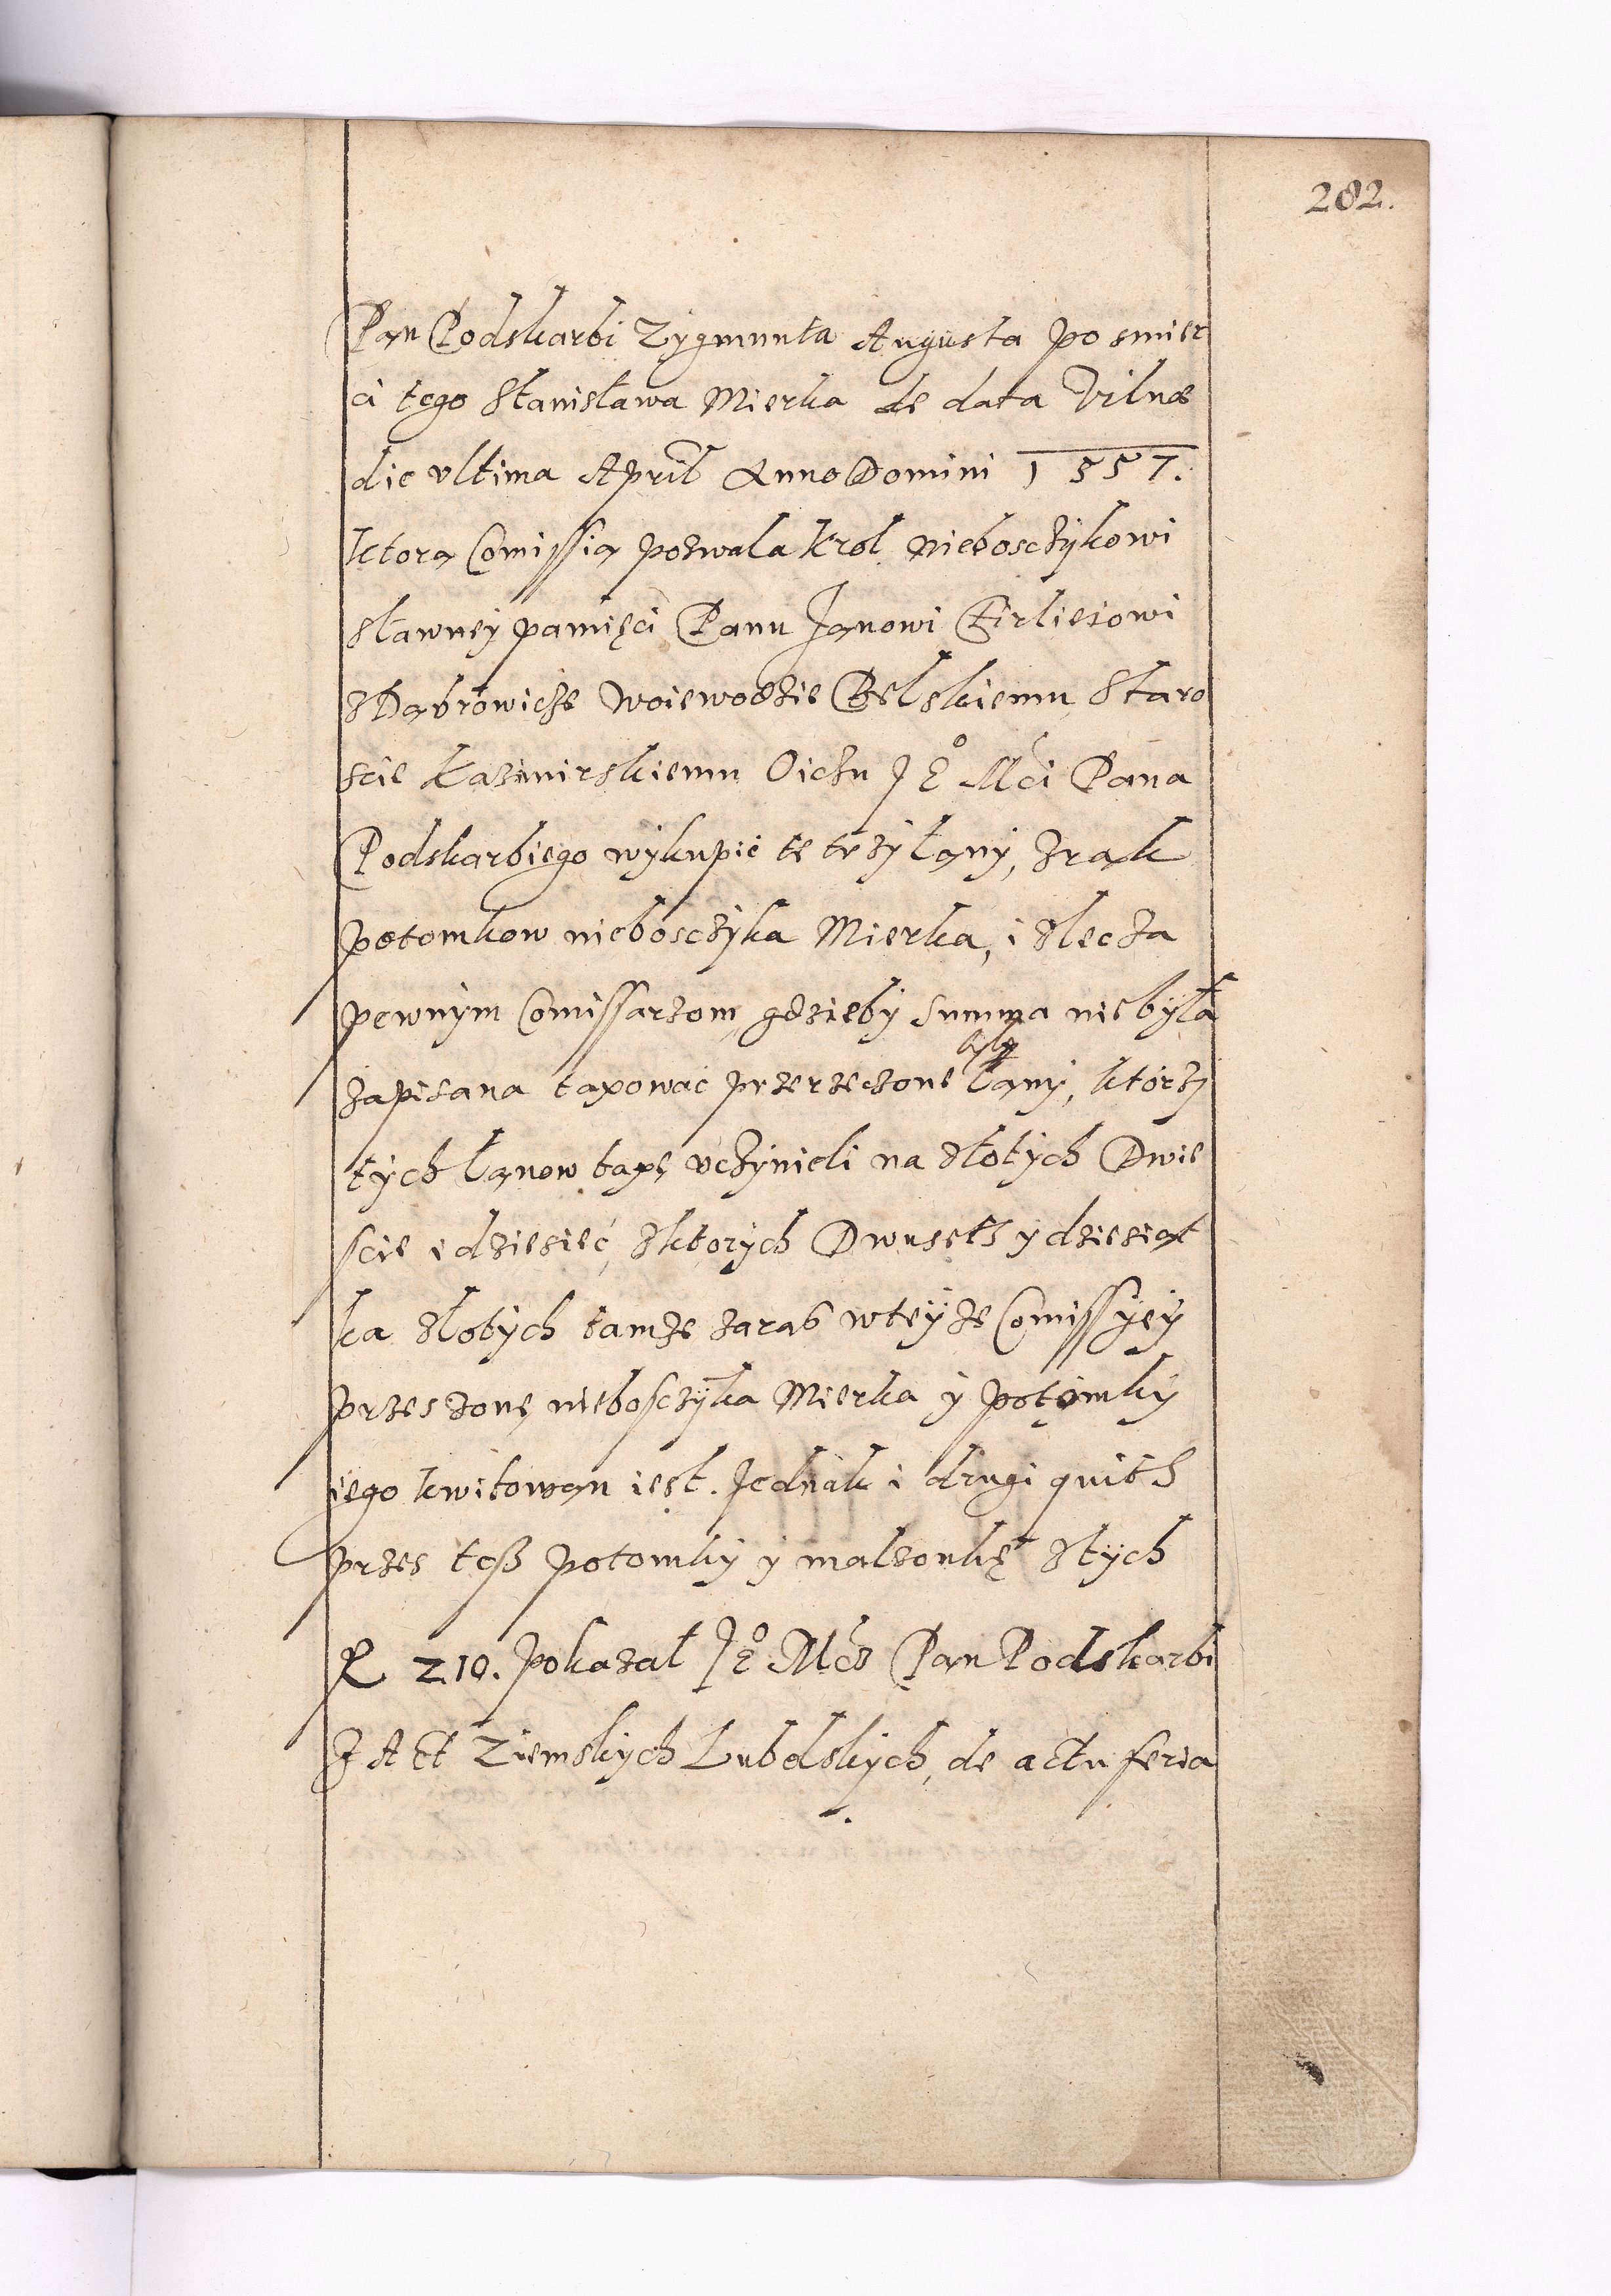 282.
Pan Podskarbi Zygmunta Augusta po smier
ci tego Stanisława Mierka de data Vilnæ
die vltima April Anno Domini 1557.
ktorą Comissią pozwala Krol nieboscżykowi
sławney pamięci Panu Janowi Firlieiowi
z Dąbrowicże woiewodzie Belskiemu, Staro
scie Kazimirskiemu Oicżu JEº Mći Pana
Podskarbiego wykupić te trży łany, z rąk
potomkow nieboscżyka Mierka, i zlecża
pewnym Comissarzom, gdzieby summa nie była
zapisana taxować przerzeczone łany, ktorzy
tych łanow taxę vcżynieli na złotych Dwie
scie i dziesieć, z ktorych Dwuseth y dziesiąt
ka złotych tamże zarab w teyże Comissyey
przes żonę nieboscżyka Mierka y potomky
iego kwitowan iest. Jednak i drugi quith
przes teß potomky y małżonkę z tych
R 210. pokazał JEº Mćz Pan Podskarbi
Z Act Ziemskych Lubelskych, de actu feria